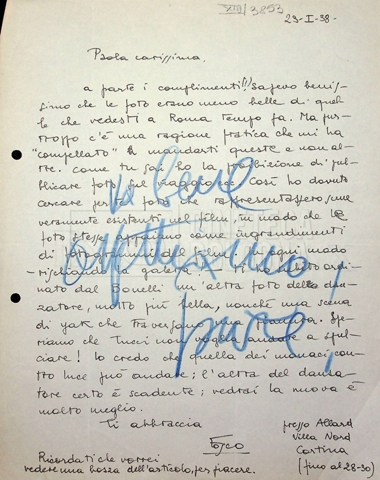 XIII/3893
23-I-38-
Paola carissima.
a parte i complimenti!! Sapevo benis-
simo che le foto erano meno belle di quel-
le che vedesti a Roma tempo fa. Ma pur-
troppo c'è una ragione pratica che mi ha
"compellato" a mandarti queste e non al-
tre. Come tu sai ho la proibizione di pub-
blicare foto sul viaggio. Così ho dovuto
cercare foto che rappresentassero scene
veramente esistenti nel film, in modo che le
foto stesse appaiano come ingrandimenti
di fotogrammi del film. In ogni modo
rischiando la galera ho ordi-
nato dal Bonelli un'altra foto della dan-
zatore, molto più bella, nonché una scena
di yak che traversano una fiumara. Spe-
riamo che Tucci non voglia andare a spul-
ciare! Io credo che quella dei monaci con-
tro luce può andare; l'altra del danza-
tore certo è scadente; vedrai la nuova è
molto meglio.
Ti abbraccia
Fosco
Ricordati che vorrei
vedere una bozza dell'articolo, per piacere.
presso Allard
Villa Nord
Cortina
(fino al 28-30)
va bene
ottimo
pure